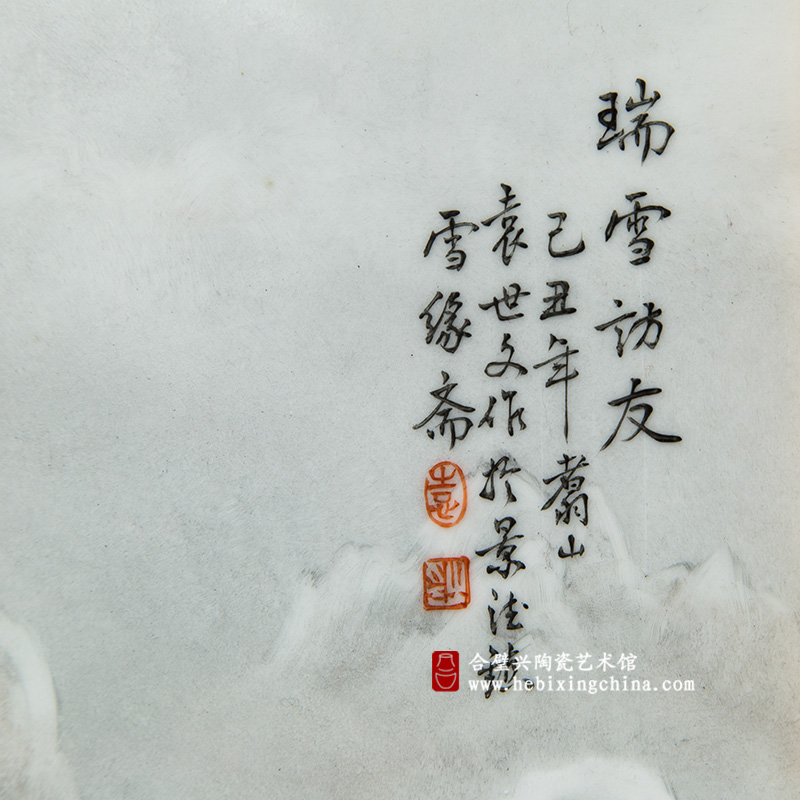 瑞雪訪友
己丑年翥山
袁世文作於景德鎮
雪緣斋
袁
合璧兴陶瓷艺术馆
www.hebixingchina.com